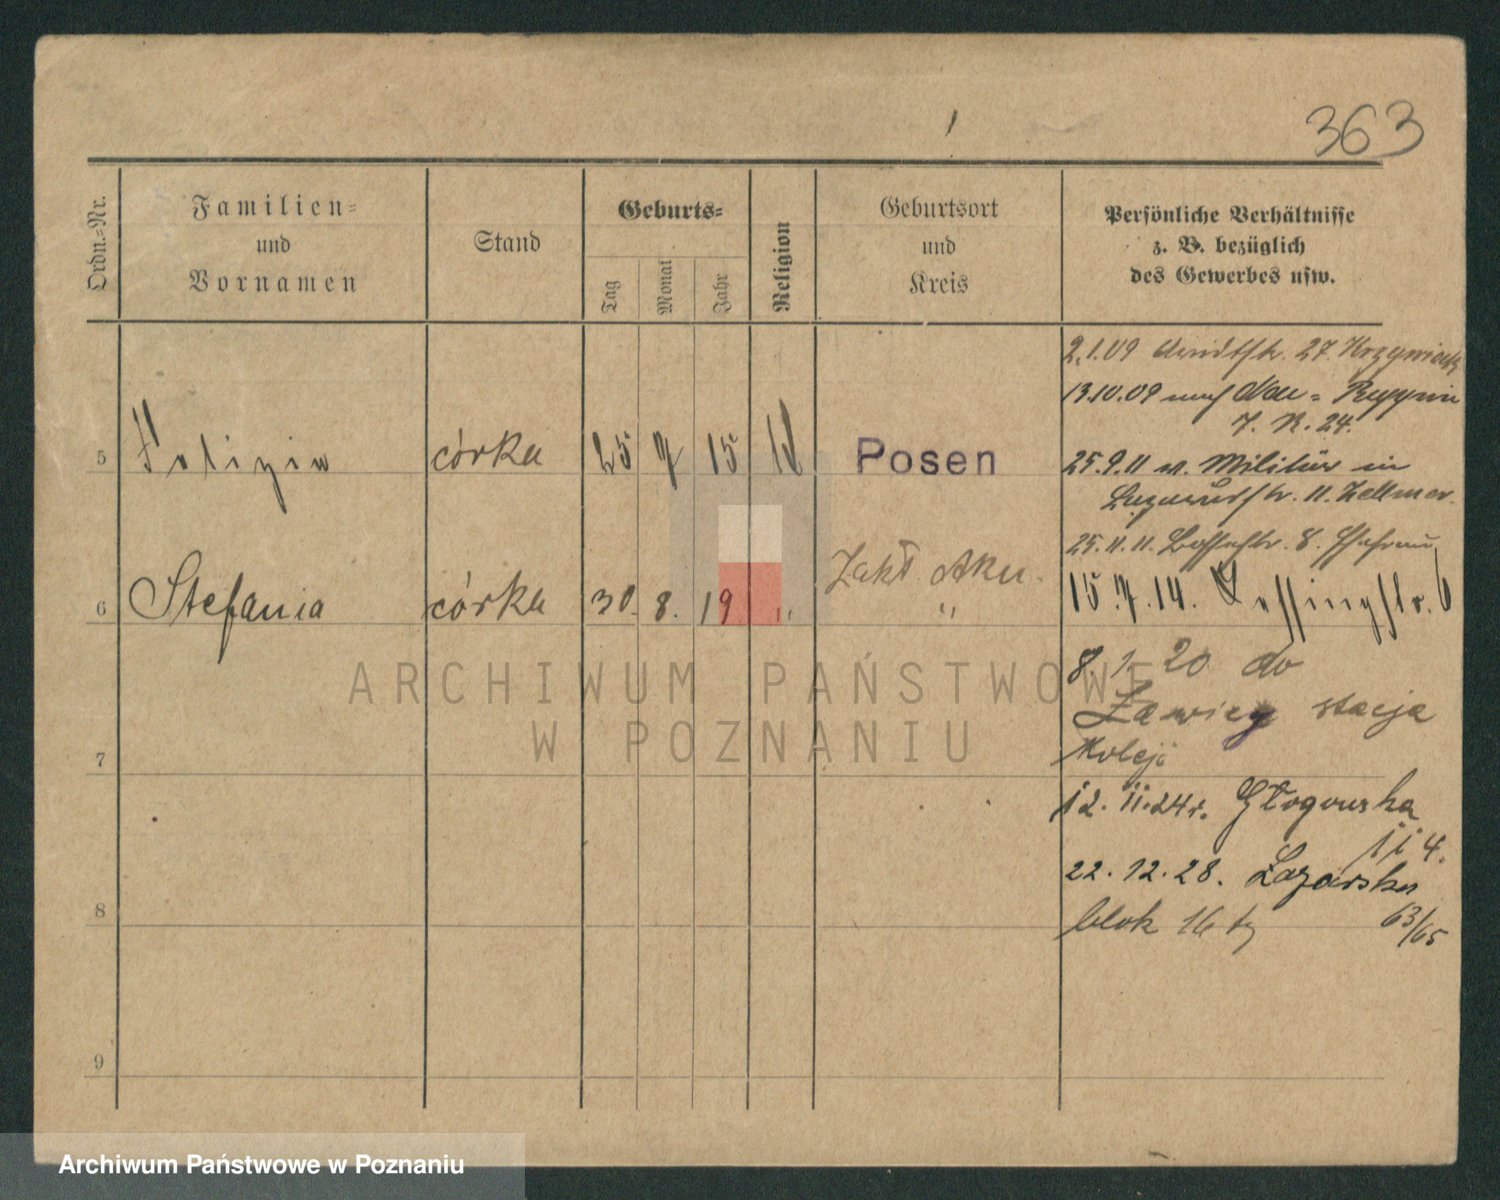 363
Ordn.-Nr.
Familien-
und
Vornamen
Stand
Geburts-
Tag
Monat
Jahr
Religion
Geburtsort
und
Kreis
Persönliche Verhältnisse
z. B. bezüglich
des Gewerbes usw.
2.1.09 Arndtstr. 27.
13.10.09 nach Neu-Ruppin
J. R. 24.
5 Felizia córka 25 7 15 Posen
25.9.11 v. Militär in
11.
25.11.11. 8.
Zakł Aku.
6 Stefania córka 30. 8. 19 " "
15.7.14. Lessingstr. 6
8 1. 20 do
stacja
7 Koleji
12. 11.24r. Głogowska
114.
22. 12. 28. Łazarska
8 blok 16 63/65
9
ARCHIWUM PAŃSTWOWE
W POZNANIU
Archiwum Państwowe w Poznaniu